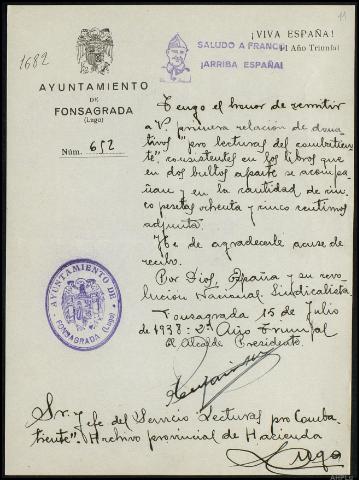 11
1682
AYUNTAMIENTO
DE
FONSAGRADA
(Lugo)
Núm. 652
SALUDO A FRANCO
¡ARRIBA ESPAÑA!
¡VIVA ESPAÑA!
II Año Triunfal
Tengo el honor de remitir
a V. primera relación de dona-
tivos "pro lecturas del combatien-
te" consistentes en los libros que
en dos bultos aparte se acompa-
ñan y en la cantidad de cin-
co pesetas ochenta y cinco centimos
adjunta.
He de agradecerle acuse de
recibo.
Por Dios, España y su revo-
lución Nacional-Sindicalista.
Fonsagrada 15 de Julio
de 1938 - 2º Año triunfal
El Alcalde Presidente.
AYUNTAMIENTO DE
FONSAGRADA (Lugo)
Sr. Jefe del Servicio Lecturas pro Comba-
tiente". Archivo provincial de Hacienda
Lugo
AHPLU